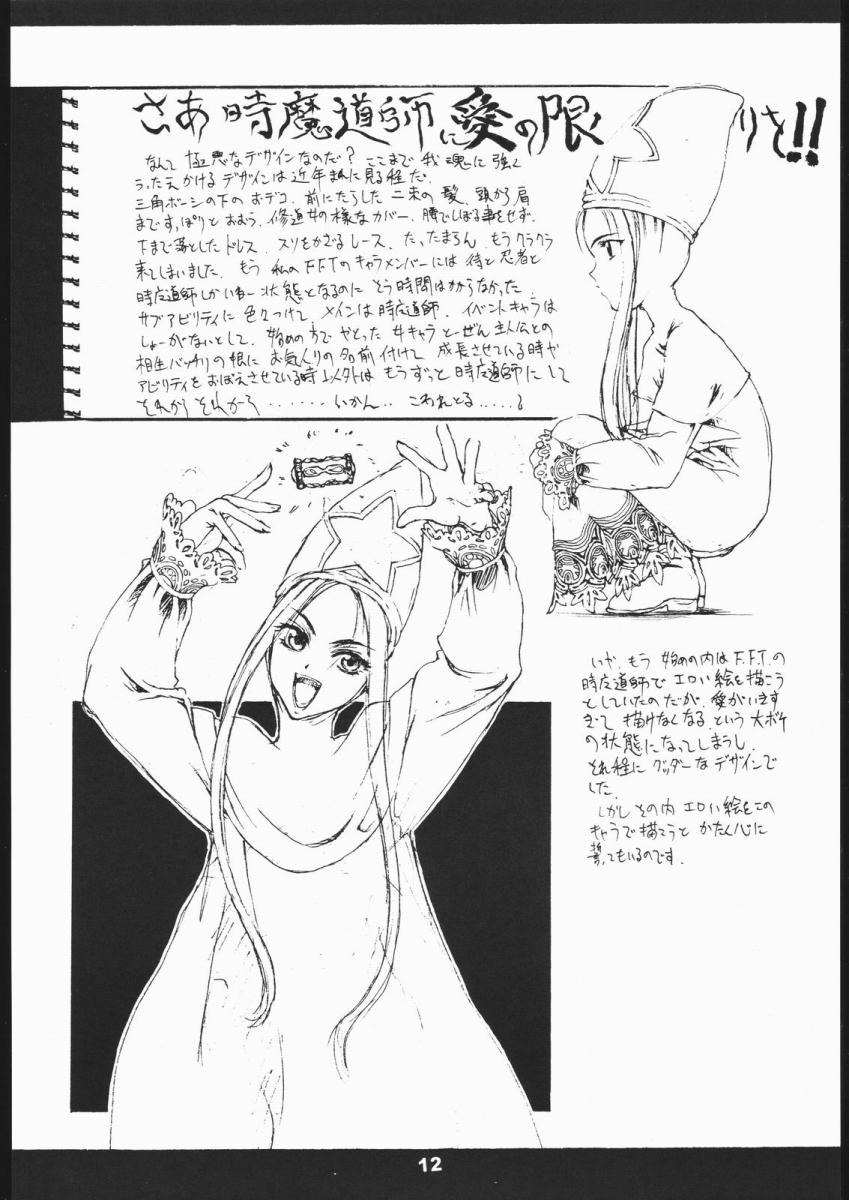 さあ時魔道師に愛の限りを!!
なんて極悪なデザインなのだ?ここまで我魂に強く
うったえかけるデザインは近年まれに見る程だ.
三角ボーシの下のおデコ.前にたらした二束の髪、頭から肩
まですっぽりとおおう、修道女の様なカバー、腰でしぼる事をせず.
下まで落としたドレス スソをかざるレース、たったまらん もうクラクラ
来てしまいました. もう 私のF.F.Tのキャラメンバーには 侍と忍者と
時魔道師しかいねー状態となるのに そう時間はかからなかった.
サブアビリティに 色々つけて メインは時魔道師. イベントキャラは
しょーがないとして、始めの方で やとった 女キャラ とーぜん主人公との
相性バッチリの娘に お気入りの名前付けて 成長させている時や
アビリティをおぼえさせている時以外は もうずっと 時魔道師にして
それから それから・・・・・・いかん‥ こわれとる・・・・・
いや.もう 始めの内はF.F.T.の
時魔道師で エロい絵を描こう
としていたのだが、愛がいきす
ぎて 描けなくなる という 大ボケ
の状態になってしまうし
それ程に グッダーなデザインで
した.
しかし その内 エロい絵をこの
キャラで描こうと かたく心に
誓ってもいるのです.
12